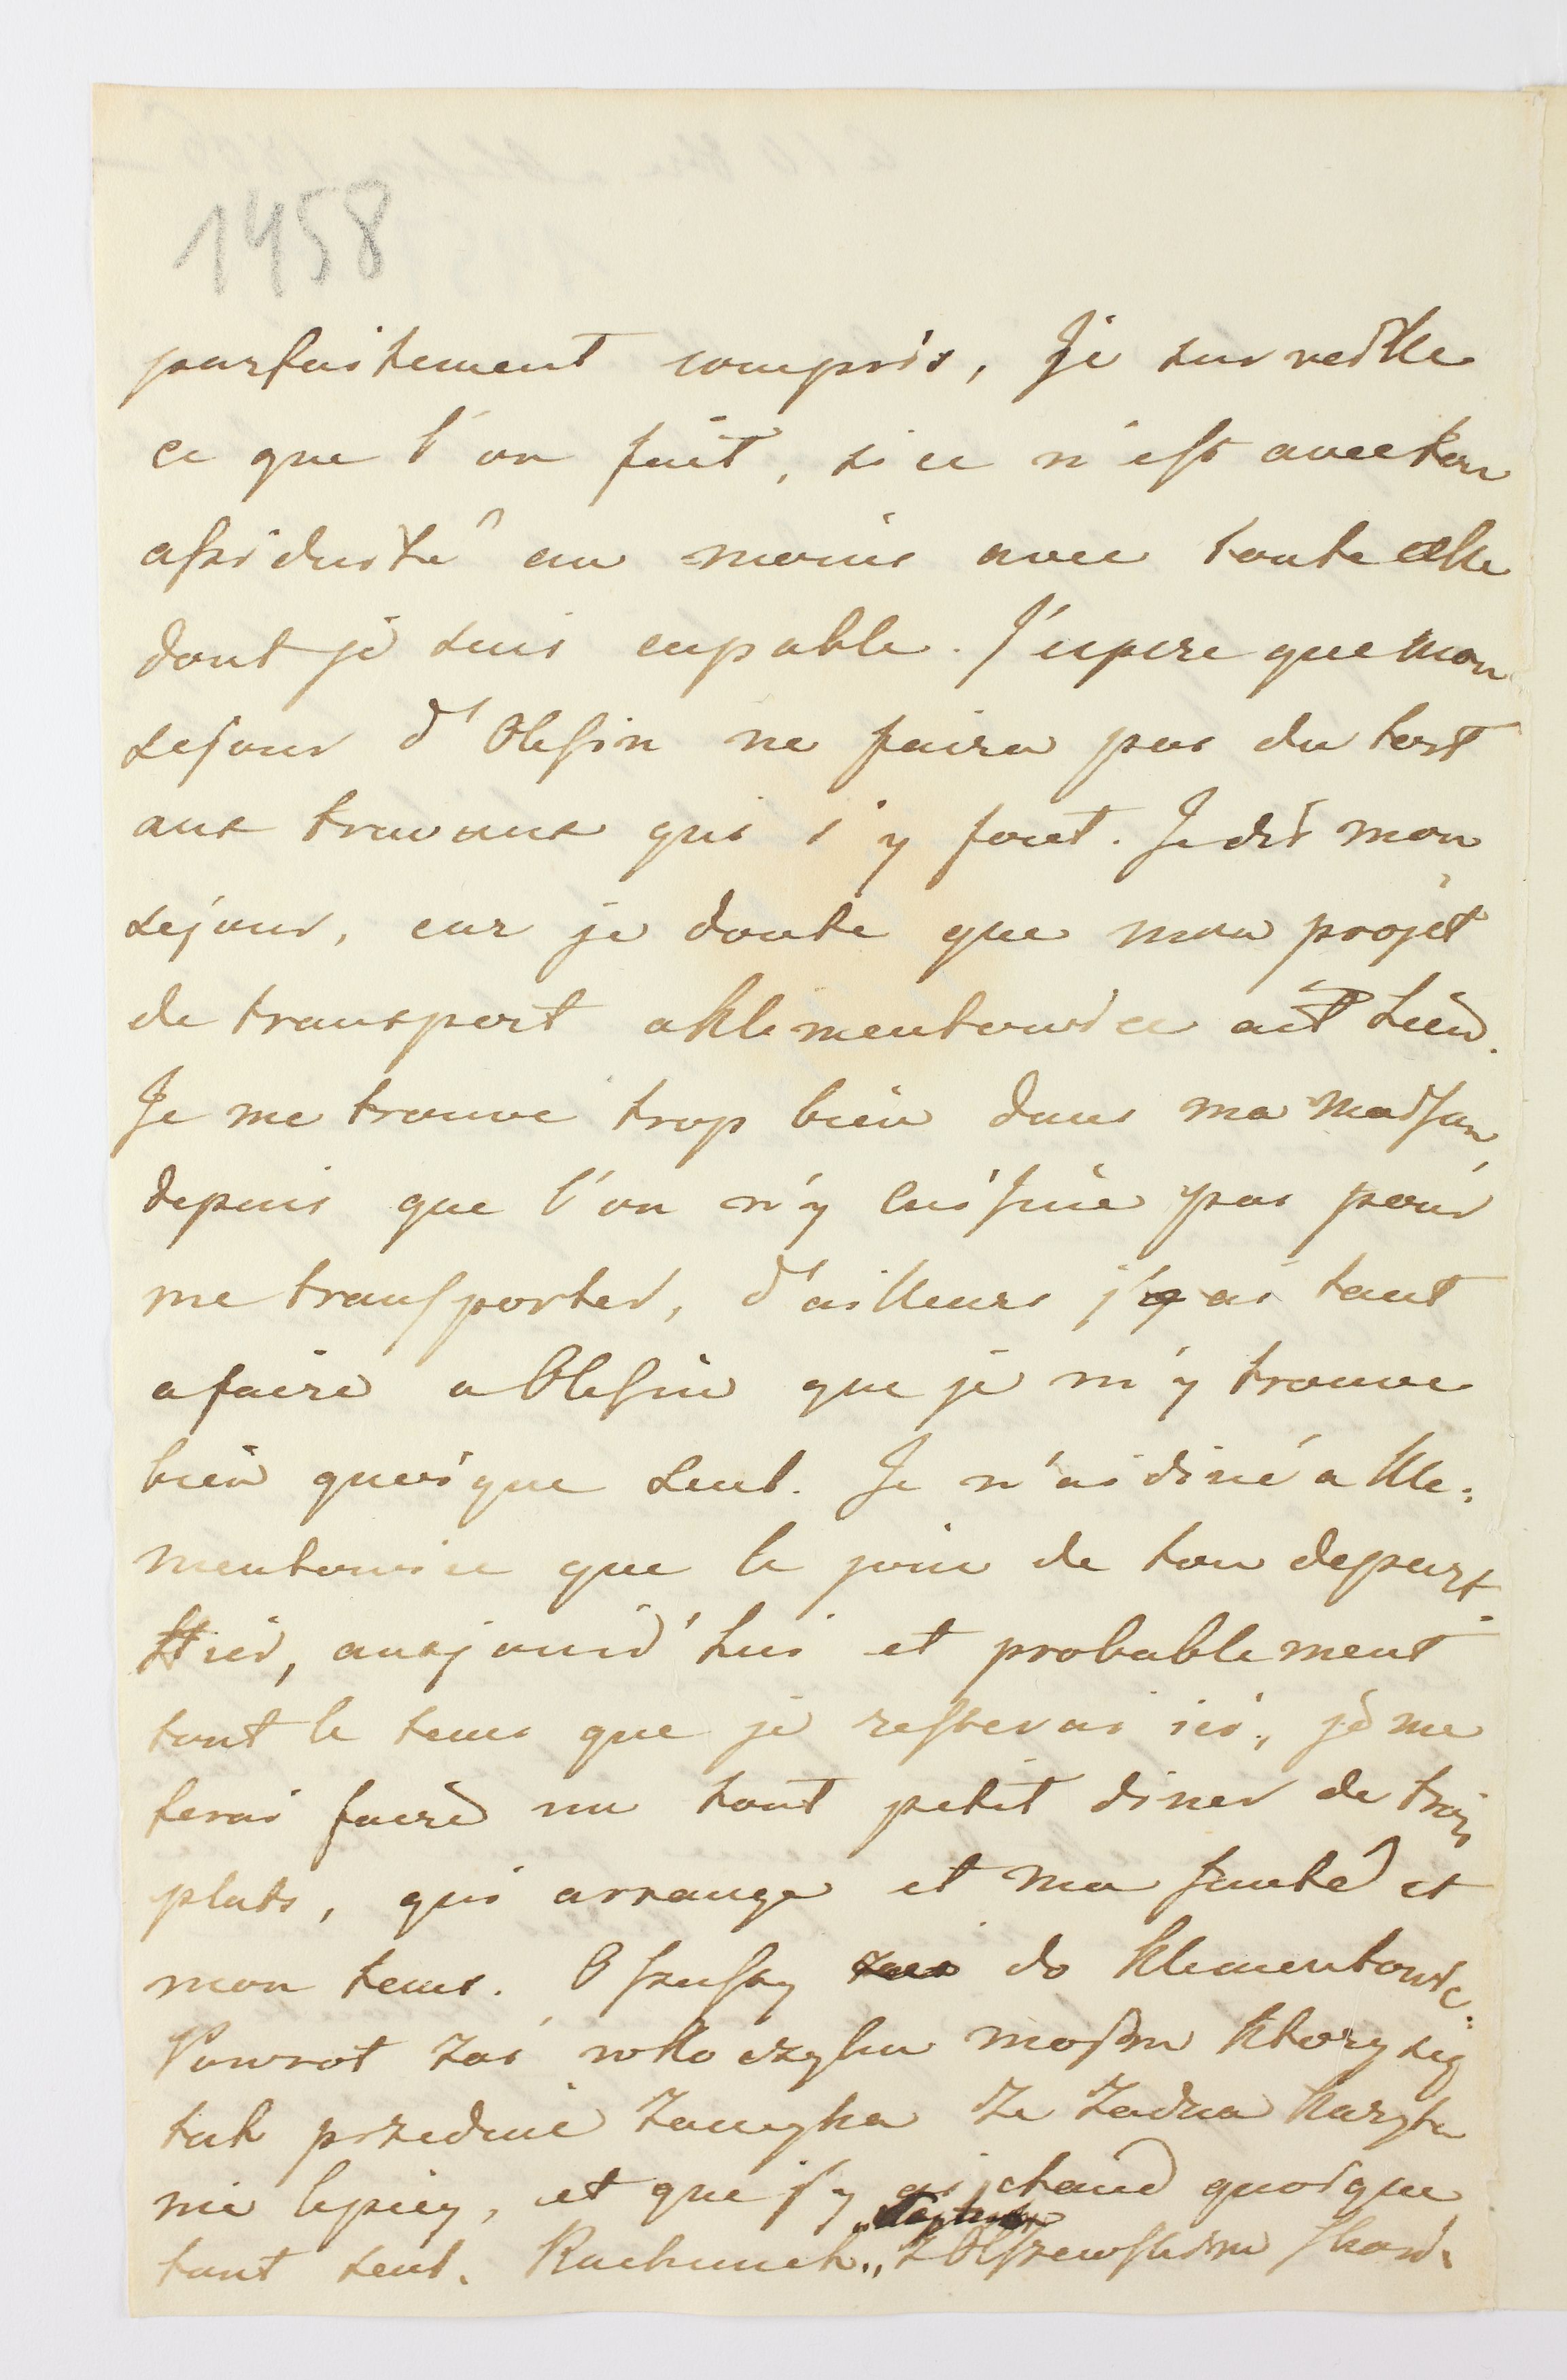 1458
parfaitement compris, Je surveille
ce que l'on fait, si ce n'est avec ton
assiduité au moins avec toute celle
dont je suis capable. J'espere que mon
sejour d'Olesin ne faira pas du tort
aux travaux qui s'y font. Je dis mon
sejour, car je doute que mon projet
de transport a Klementowice ait lieu.
Je me trouve trop bien dans ma maison,
depuis que l'on n'y cuisine pas pour
me transporter, d'ailleurs j'y ai tant
a faire a Olesin que je m'y trouve
bien quoique seul. Je n'ai diné a Kle:
mentowice que le jour de ton depart.
Hier, aujourd'hui et probablement
tout le tems que je resterai ici, je me
ferai faire un tout petit diner de trois
plats, qui arrange et ma santé et
mon tems. do Klementowic.
Powrot zaś
tak zamyka że żadna
nie lepiey, et que j'y ai chaud quoique
tout seul. Rachunek z Olszewskim skoń: